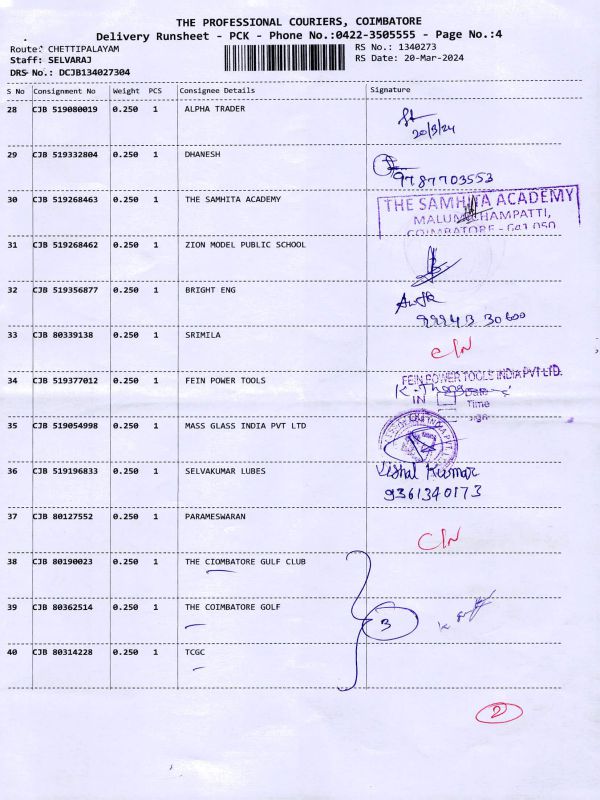 THE PROFESSIONAL COURIERS, COIMBATORE
Delivery Runsheet - PCK - Phone No.:0422-3505555 - Page No.:4
Route: CHETTIPALAYAM RS No.: 1340273
Staff: SELVARAJ RS Date: 20-Mar-2024
DRS No.: DCJB134027304
S No Consignment No Weight PCS Consignee Details Signature
28 CJB 519080019 0.250 1 ALPHA TRADER
20/3/24
29 CJB 519332804 0.250 1 DHANESH
9787703553
30 CJB 519268463 0.250 1 THE SAMHITA ACADEMY THE SAMHITA ACADEMY
MALUMICHAMPATTI,
COIMBATORE - 641 050
31 CJB 519268462 0.250 1 ZION MODEL PUBLIC SCHOOL
32 CJB 519356877 0.250 1 BRIGHT ENG
99943 30600
33 CJB 80339138 0.250 1 SRIMILA
C/N
34 CJB 519377012 0.250 1 FEIN POWER TOOLS FEIN POWER TOOLS INDIA PVT LTD.
IN Date
Time
Sign
35 CJB 519054998 0.250 1 MASS GLASS INDIA PVT LTD
36 CJB 519196833 0.250 1 SELVAKUMAR LUBES Vishal Kumar
9361340173
37 CJB 80127552 0.250 1 PARAMESWARAN
C/N
38 CJB 80190023 0.250 1 THE CIOMBATORE GULF CLUB
39 CJB 80362514 0.250 1 THE COIMBATORE GOLF
3
40 CJB 80314228 0.250 1 TCGC
2